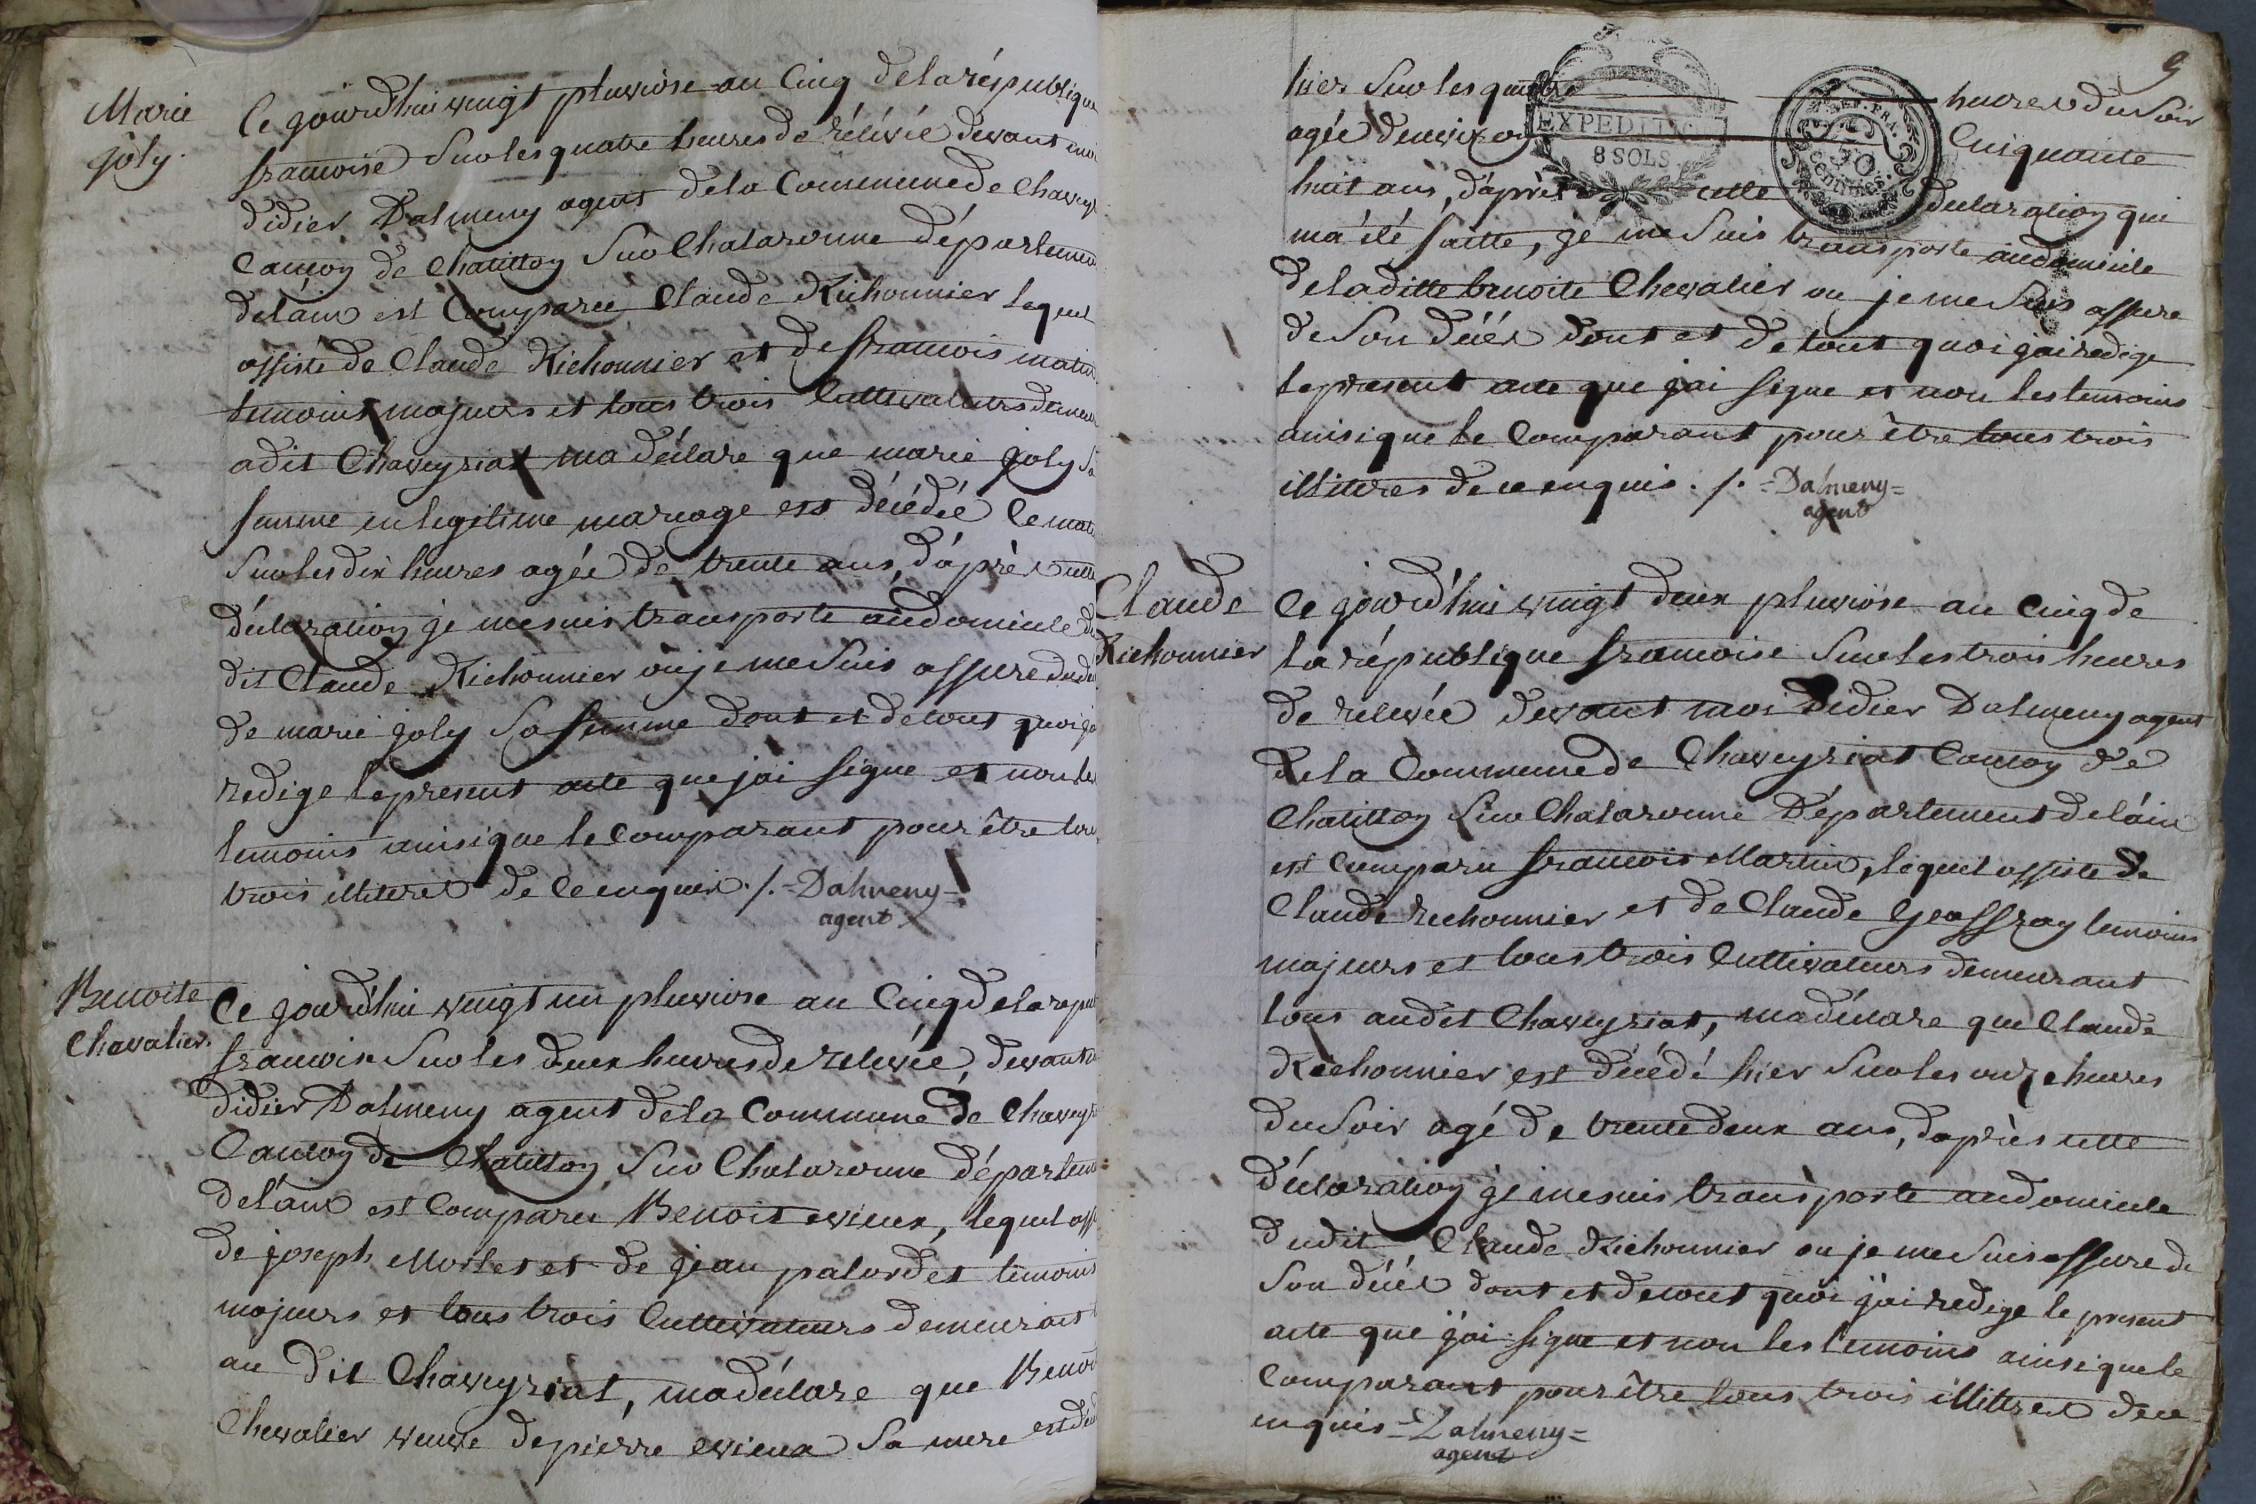 Marie
joly.
Ce gourd'hui vingt pluviose an Cinq de la république
francoise Sur les quatre heures de rélévée devant moi
didier Dalmeny agent de la Commune de Chavey
Canton de Chatillon Sur Chalaronne départemen
de lain est Comparu Claude Richonnier lequel
assisté de Claude Richonnier et de francois matin
temoins majeurs et tous trois Cultivateurs demeu
a dit Chaveyriat ma déclare que marie joly Sa
femme en legitime mariage est décédée Ce mat
Sur les dix heures agée de trente ans, d'après cette
déclaration je me suis transporte au domicile du
dit Claude Richonnier ou je me Suis assure du dé
de marie joly Sa femme dont et de tout quoi ja
redige le present acte que jai signe et non les
temoins ainsi que le Comparant pour être tou
trois illiteres de Ce enquis ./. =Dalmeny=
agent
Benoite
Chavalier.
Ce jourd'hui vingt un pluviose an Cinq de la repu
francoise Sur les deux heures de relevée, devant m
didier Dalmeny agent de la Commune de Chavey
Canton de Chatillon Sur Chalaronne départem
de l'ain est Comparu Benoit evieux, lequel ass
de joseph Morlet et de jean palordet temoins
majeurs et tous trois Cultivateurs demeurant
au dit Chaveyriat, ma déclare que Benoi
Chevalier veuve de pierre evieux Sa mere est déc
9
hier Sur les quattre heures du Soir
EXPEDITION
8 SOLS
REP. FRA.
50
centimes.
agée denviron Cinquante
huit ans, d'après cette declaration qui
ma été faitte, je me Suis transporte au domicile
de la ditte benoite Chevalier ou je me Suis assure
de Son décés dont et de tout quoi jai redige
le present acte que jai signe et non les temoins
ainsi que le Comparant pour être tous trois
illiteres de ce enquis ./. =Dalmeny=
agent
Claude
Richonnier
Ce gourd'hui vingt deux pluviose an Cinq de
la république francoise Sur les trois heures
de relevée devant moi Didier Dalmeny agent
de la Commune de Chaveyriat Canton de
Chatillon Sur Chalaronne Département de láin
est Comparu francois Martin, lequel assiste de
Claude richonnier et de Claude Geoffray temoins
majeurs et tous trois Cultivateurs demeurant
tous audit Chaveyriat, ma déclare que Claude
Richonnier est décédé hier Sur les onze heures
du Soir agé de trente deux ans, daprès cette
déclaration je me suis transporte au domicile
dudit Claude Richonnier ou je me Suis assure de
Son décés dont et de tout quoi j'ai redige le present
acte que j'ai signe et non les temoins ainsi que le
Comparant pour être tous trois illittres de ce
enquis =Dalmeny=
agent